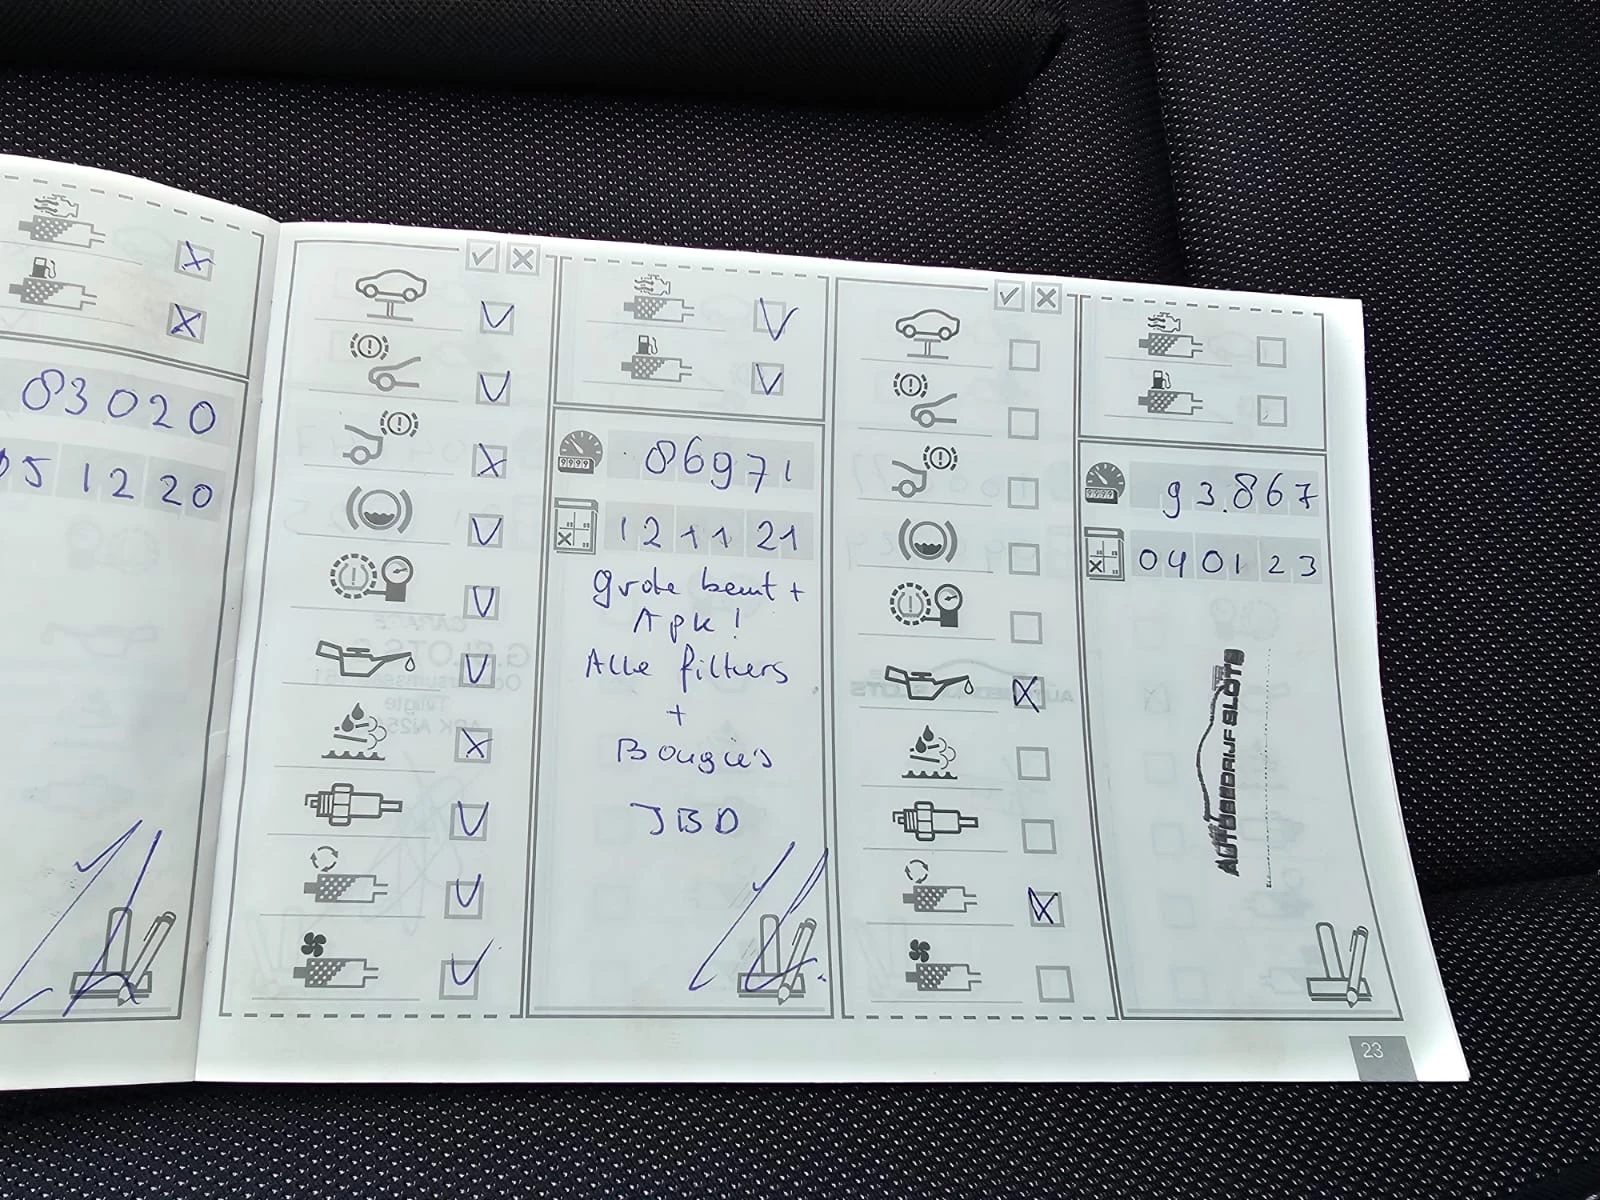 83020
051220
86971
121121
grote beurt +
Apk!
Alle filters
+
Bougie's
JBD
93.867
040123
AUTOBEDRIJF SLOTS
23